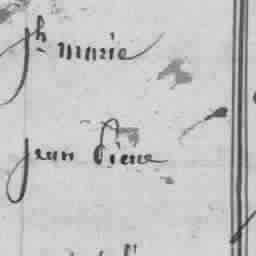 Jh marie
Jean Piere